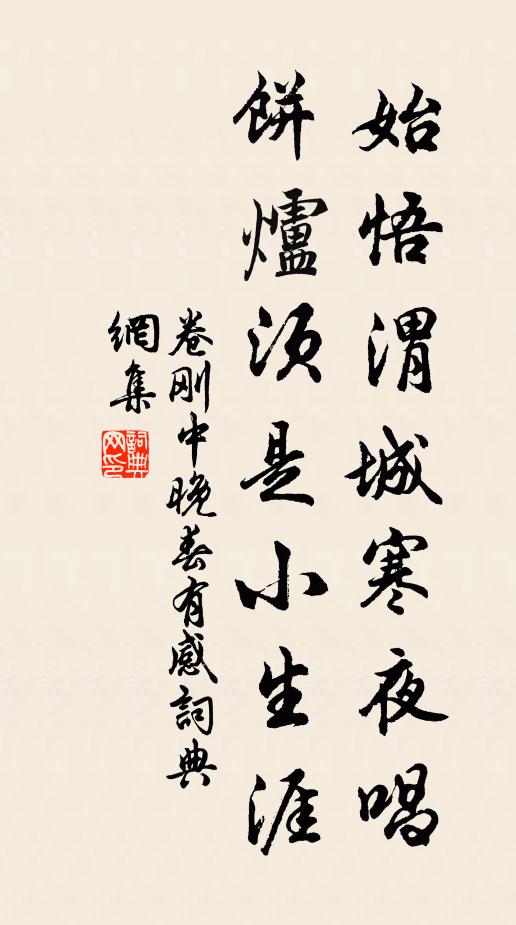 始悟渭城寒夜唱
餅爐須是小生涯
卷刚中晚春有感詞典
網集
詞典
网印